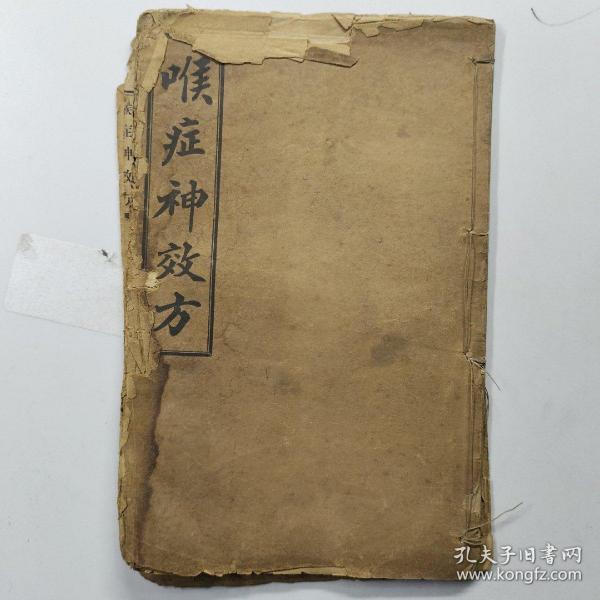 喉症神效方
孔夫子旧书网
www.kongfz.com